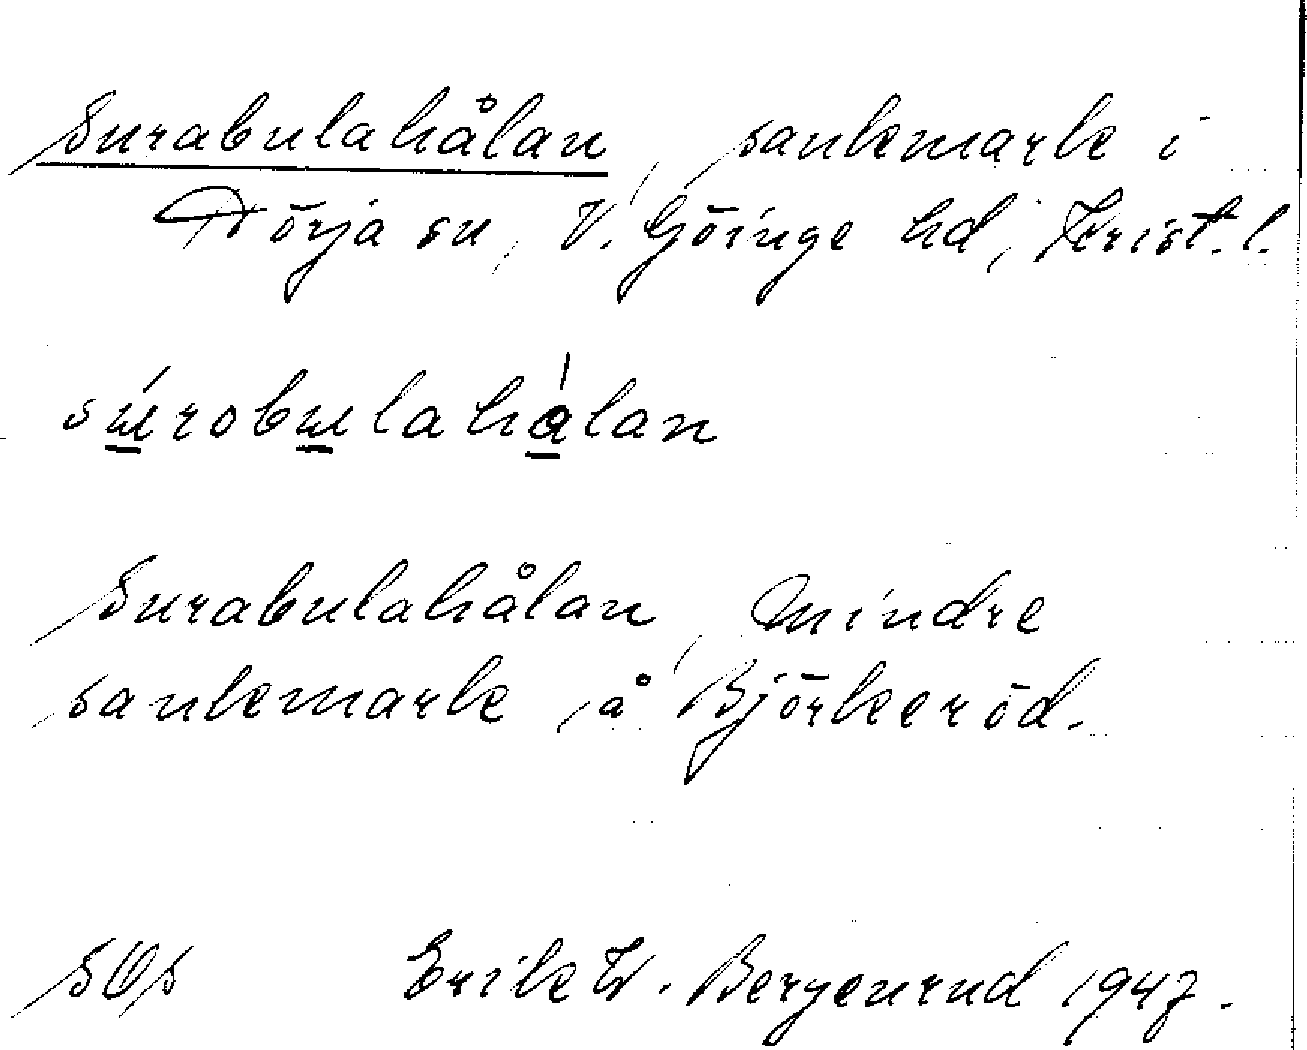 Surabulahålan, sankmark i
Norja sn, V. Göinge hd, Krist. l.
súrobulahálan
Surabulahålan, mindre
sankmark å Björkeröd.
Erik W. Bergenrud 1947.